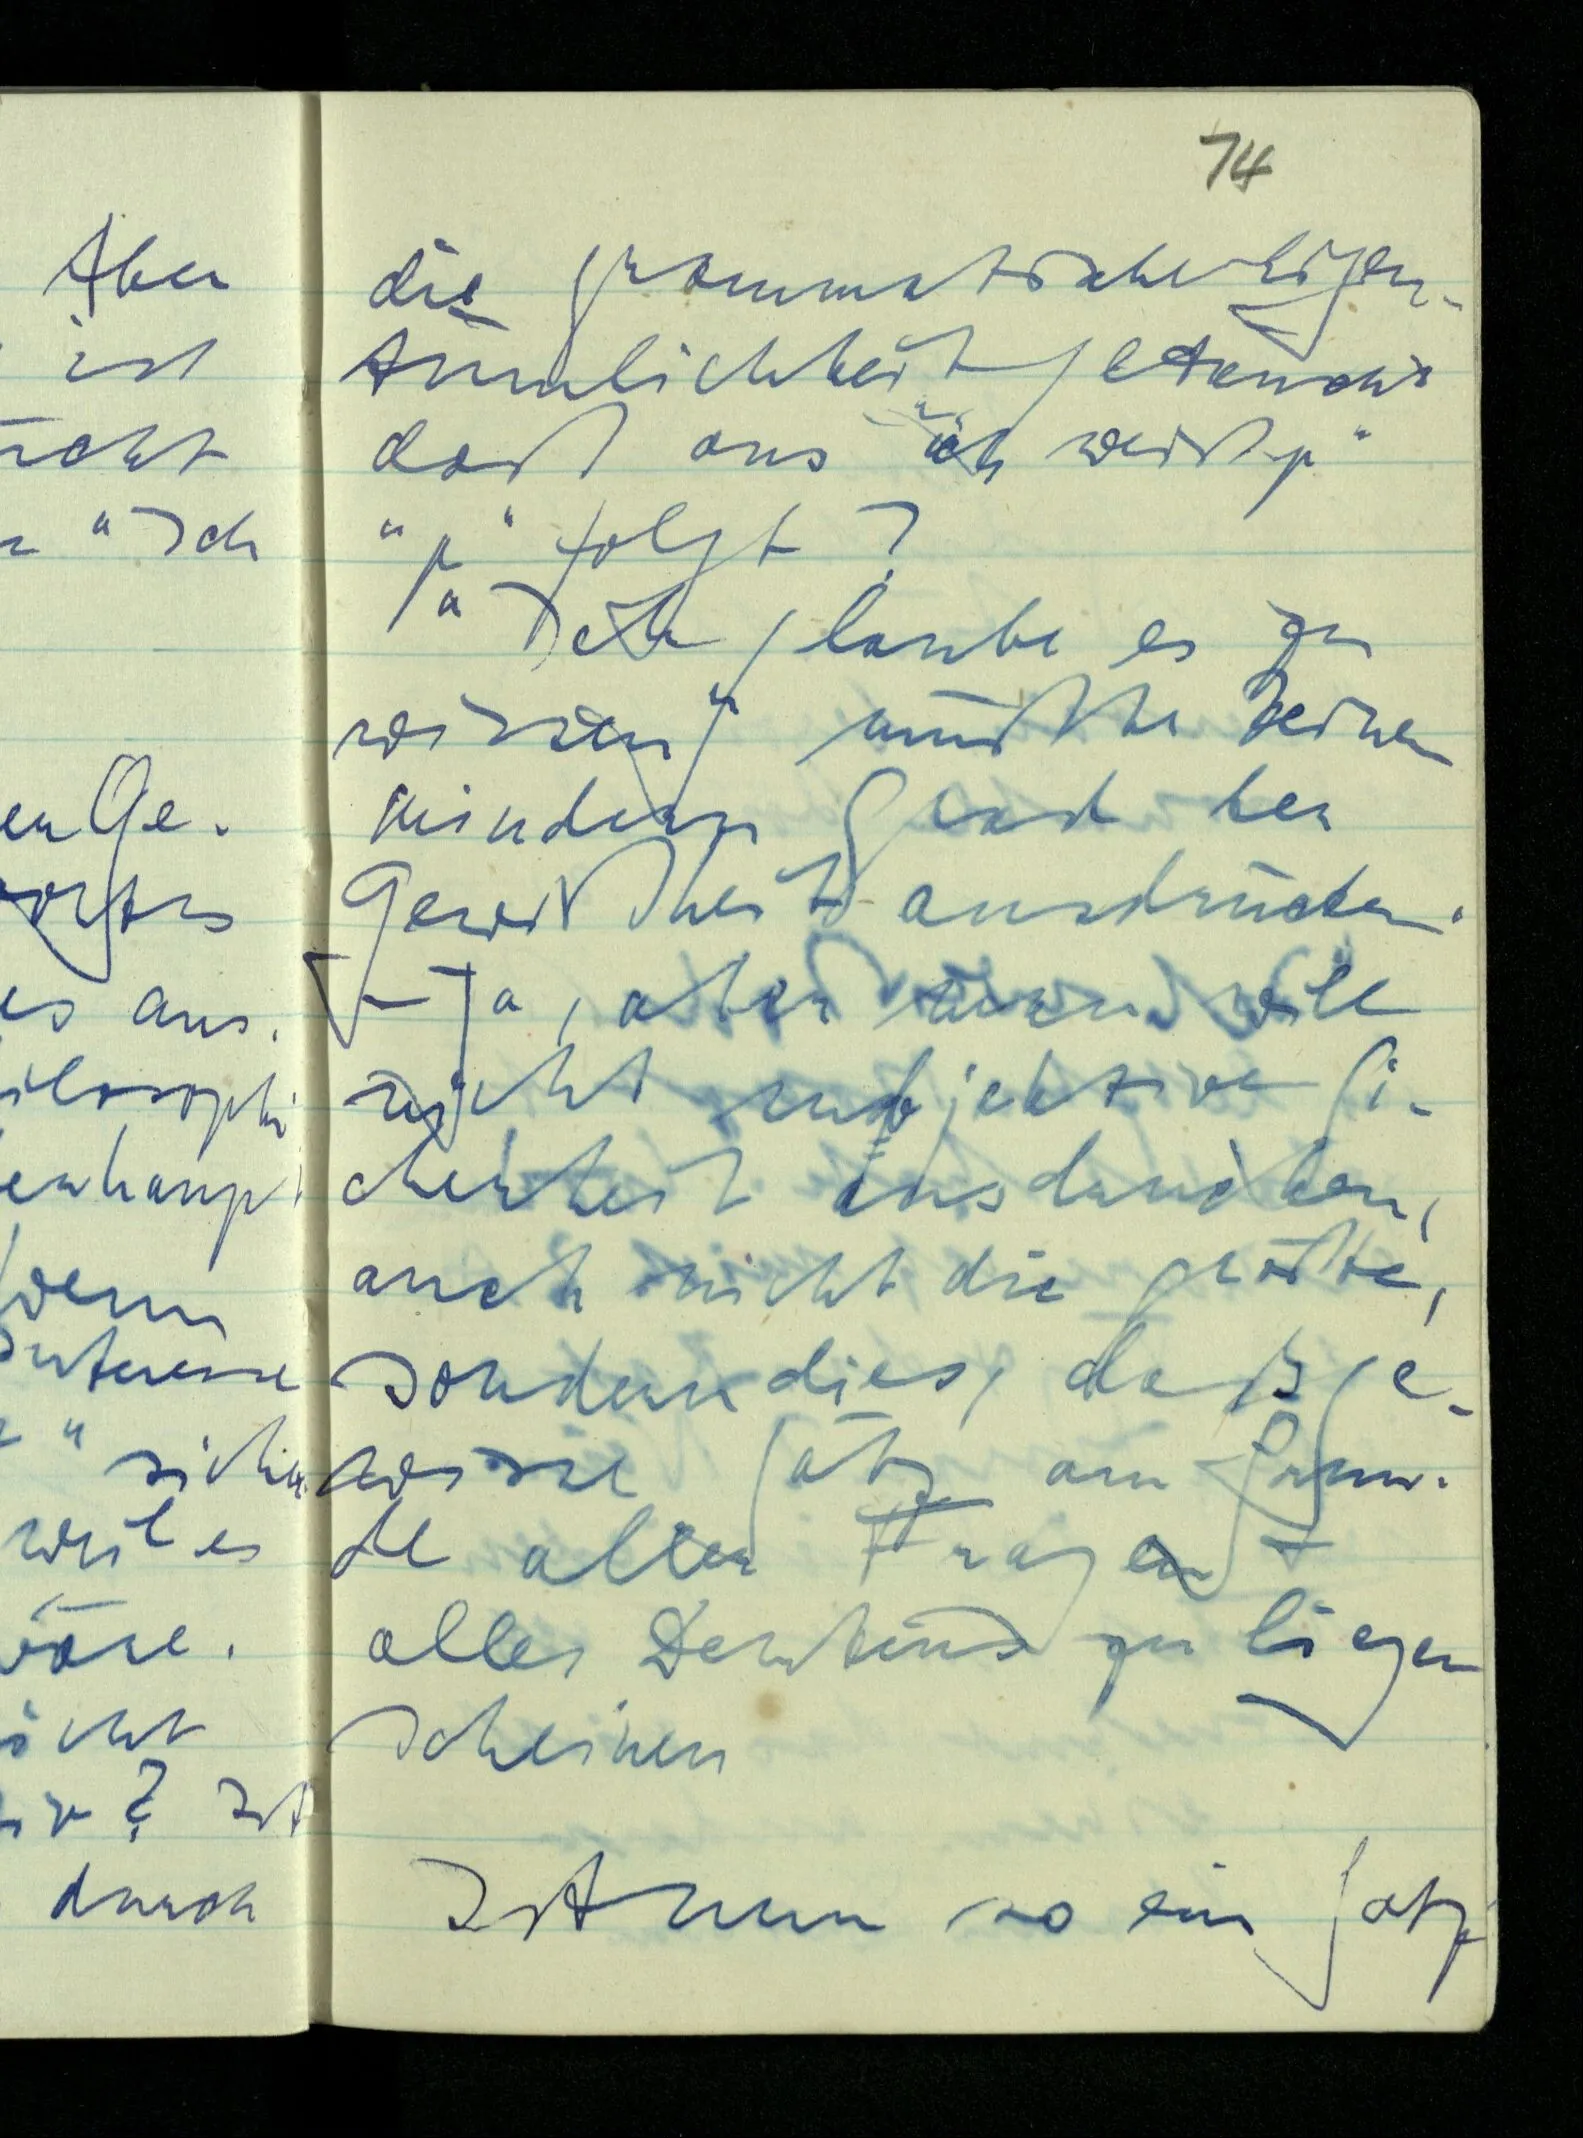 Aber
ist
"Ich
en Ge-
es aus.
wenn
Interesse
" sicher
weil es
wäre.
? Ist
durch
74
die grammatische Eigen-
tümlichkeit getäuscht
daß aus "ich weiß p"
"p" folgt?
"Ich glaube es zu
wissen" müßte keinen
mindern Grad der
Gewißheit ausdrücken.
– Ja, aber man will
nicht subjektive Si-
cherheit ausdrücken,
auch nicht die größte,
sondern dies, daß ge-
wisse Sätze am Grun-
de aller Fragen +
alles Denkens zu liegen
scheinen
Ist nun so ein Satz